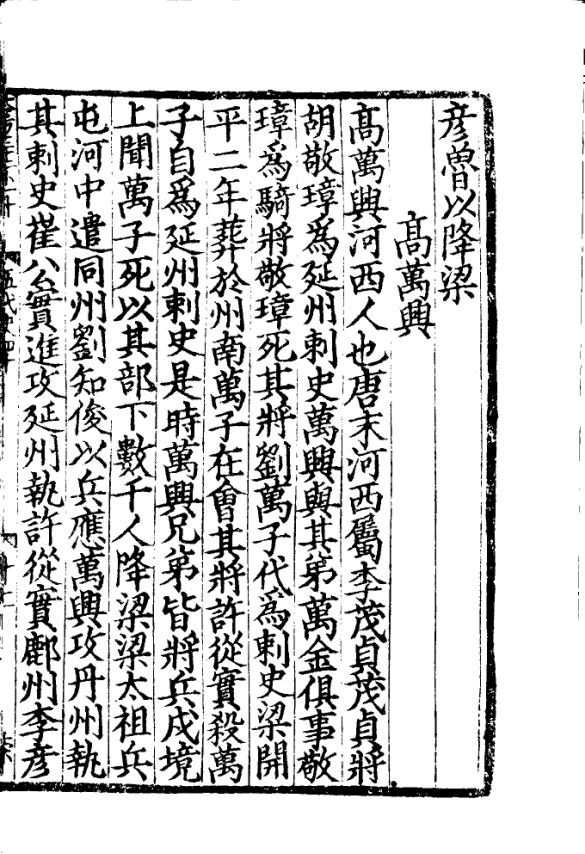 彦魯以降梁
髙萬興
髙萬興河西人也唐末河西屬李茂貞茂貞將
胡敬璋爲延州刺史萬興與其弟萬金俱事敬
璋爲騎將敬璋死其將劉萬子代爲刺史梁開
平二年葬於州南萬子在會其將許從實殺萬
子自爲延州刺史是時萬興兄弟皆將兵戍境
上聞萬子死以其部下數千人降梁梁太祖兵
屯河中遣同州劉知俊以兵應萬興攻丹州執
其刺史崔公實進攻延州執許從實鄜州李彦